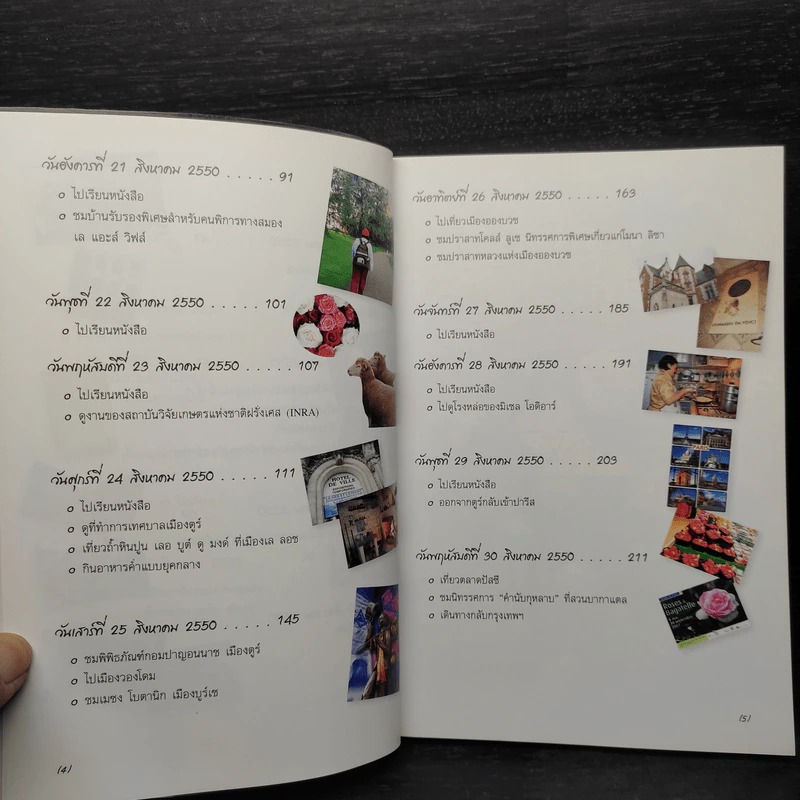 วันอังคารที่ 21 สิงหาคม 2550 . . . . . 91
o ไปเรียนหนังสือ
o ชมบ้านรับรองพิเศษสำหรับคนพิการทางสมอง
เล แอะส์ วิฟส์
วันพุธที่ 22 สิงหาคม 2550 . . . . . . 101
o ไปเรียนหนังสือ
วันพฤหัสบดีที่ 23 สิงหาคม 2550 . . . . . 107
o ไปเรียนหนังสือ
o ดูงานของสถาบันวิจัยเกษตรแห่งชาติฝรั่งเศส (INRA)
วันศุกร์ที่ 24 สิงหาคม 2550 . . . . . 111
o ไปเรียนหนังสือ
o ดูที่ทำการเทศบาลเมืองตูร์
o เที่ยวถ้ำหินปูน เลอ บูต์ ดู มงด์ ที่เมืองเล ลอช
o กินอาหารค่ำแบบยุคกลาง
วันเสาร์ที่ 25 สิงหาคม 2550 . . . . . 145
o ชมพิพิธภัณฑ์กอมปาญอนนาช เมืองตูร์
o ไปเมืองวองโดม
o ชมเมซง โบตานิก เมืองบูร์เซ
HOTEL
DE VILLE
(4)
วันอาทิตย์ที่ 26 สิงหาคม 2550 . . . . . 163
o ไปเที่ยวเมืองอองบวซ
o ชมปราสาทโคลส์ ลูเซ นิทรรศการพิเศษเกี่ยวแก่โมนา ลิซา
o ชมปราสาทหลวงแห่งเมืองอองบวซ
วันจันทร์ที่ 27 สิงหาคม 2550 . . . . . 185
o ไปเรียนหนังสือ
LEONARDO DA VINCI
วันอังคารที่ 28 สิงหาคม 2550 . . . . . 191
o ไปเรียนหนังสือ
o ไปดูโรงหล่อของมิเชล โอดิอาร์
วันพุธที่ 29 สิงหาคม 2550 . . . . . 203
o ไปเรียนหนังสือ
o ออกจากตูร์กลับเข้าปารีส
วันพฤหัสบดีที่ 30 สิงหาคม 2550 . . . . . 211
o เที่ยวตลาดปัสซี
o ชมนิทรรศการ “คำนับกุหลาบ” ที่สวนบากาแตล
o เดินทางกลับกรุงเทพฯ
Roses à
Bagatelle
(5)